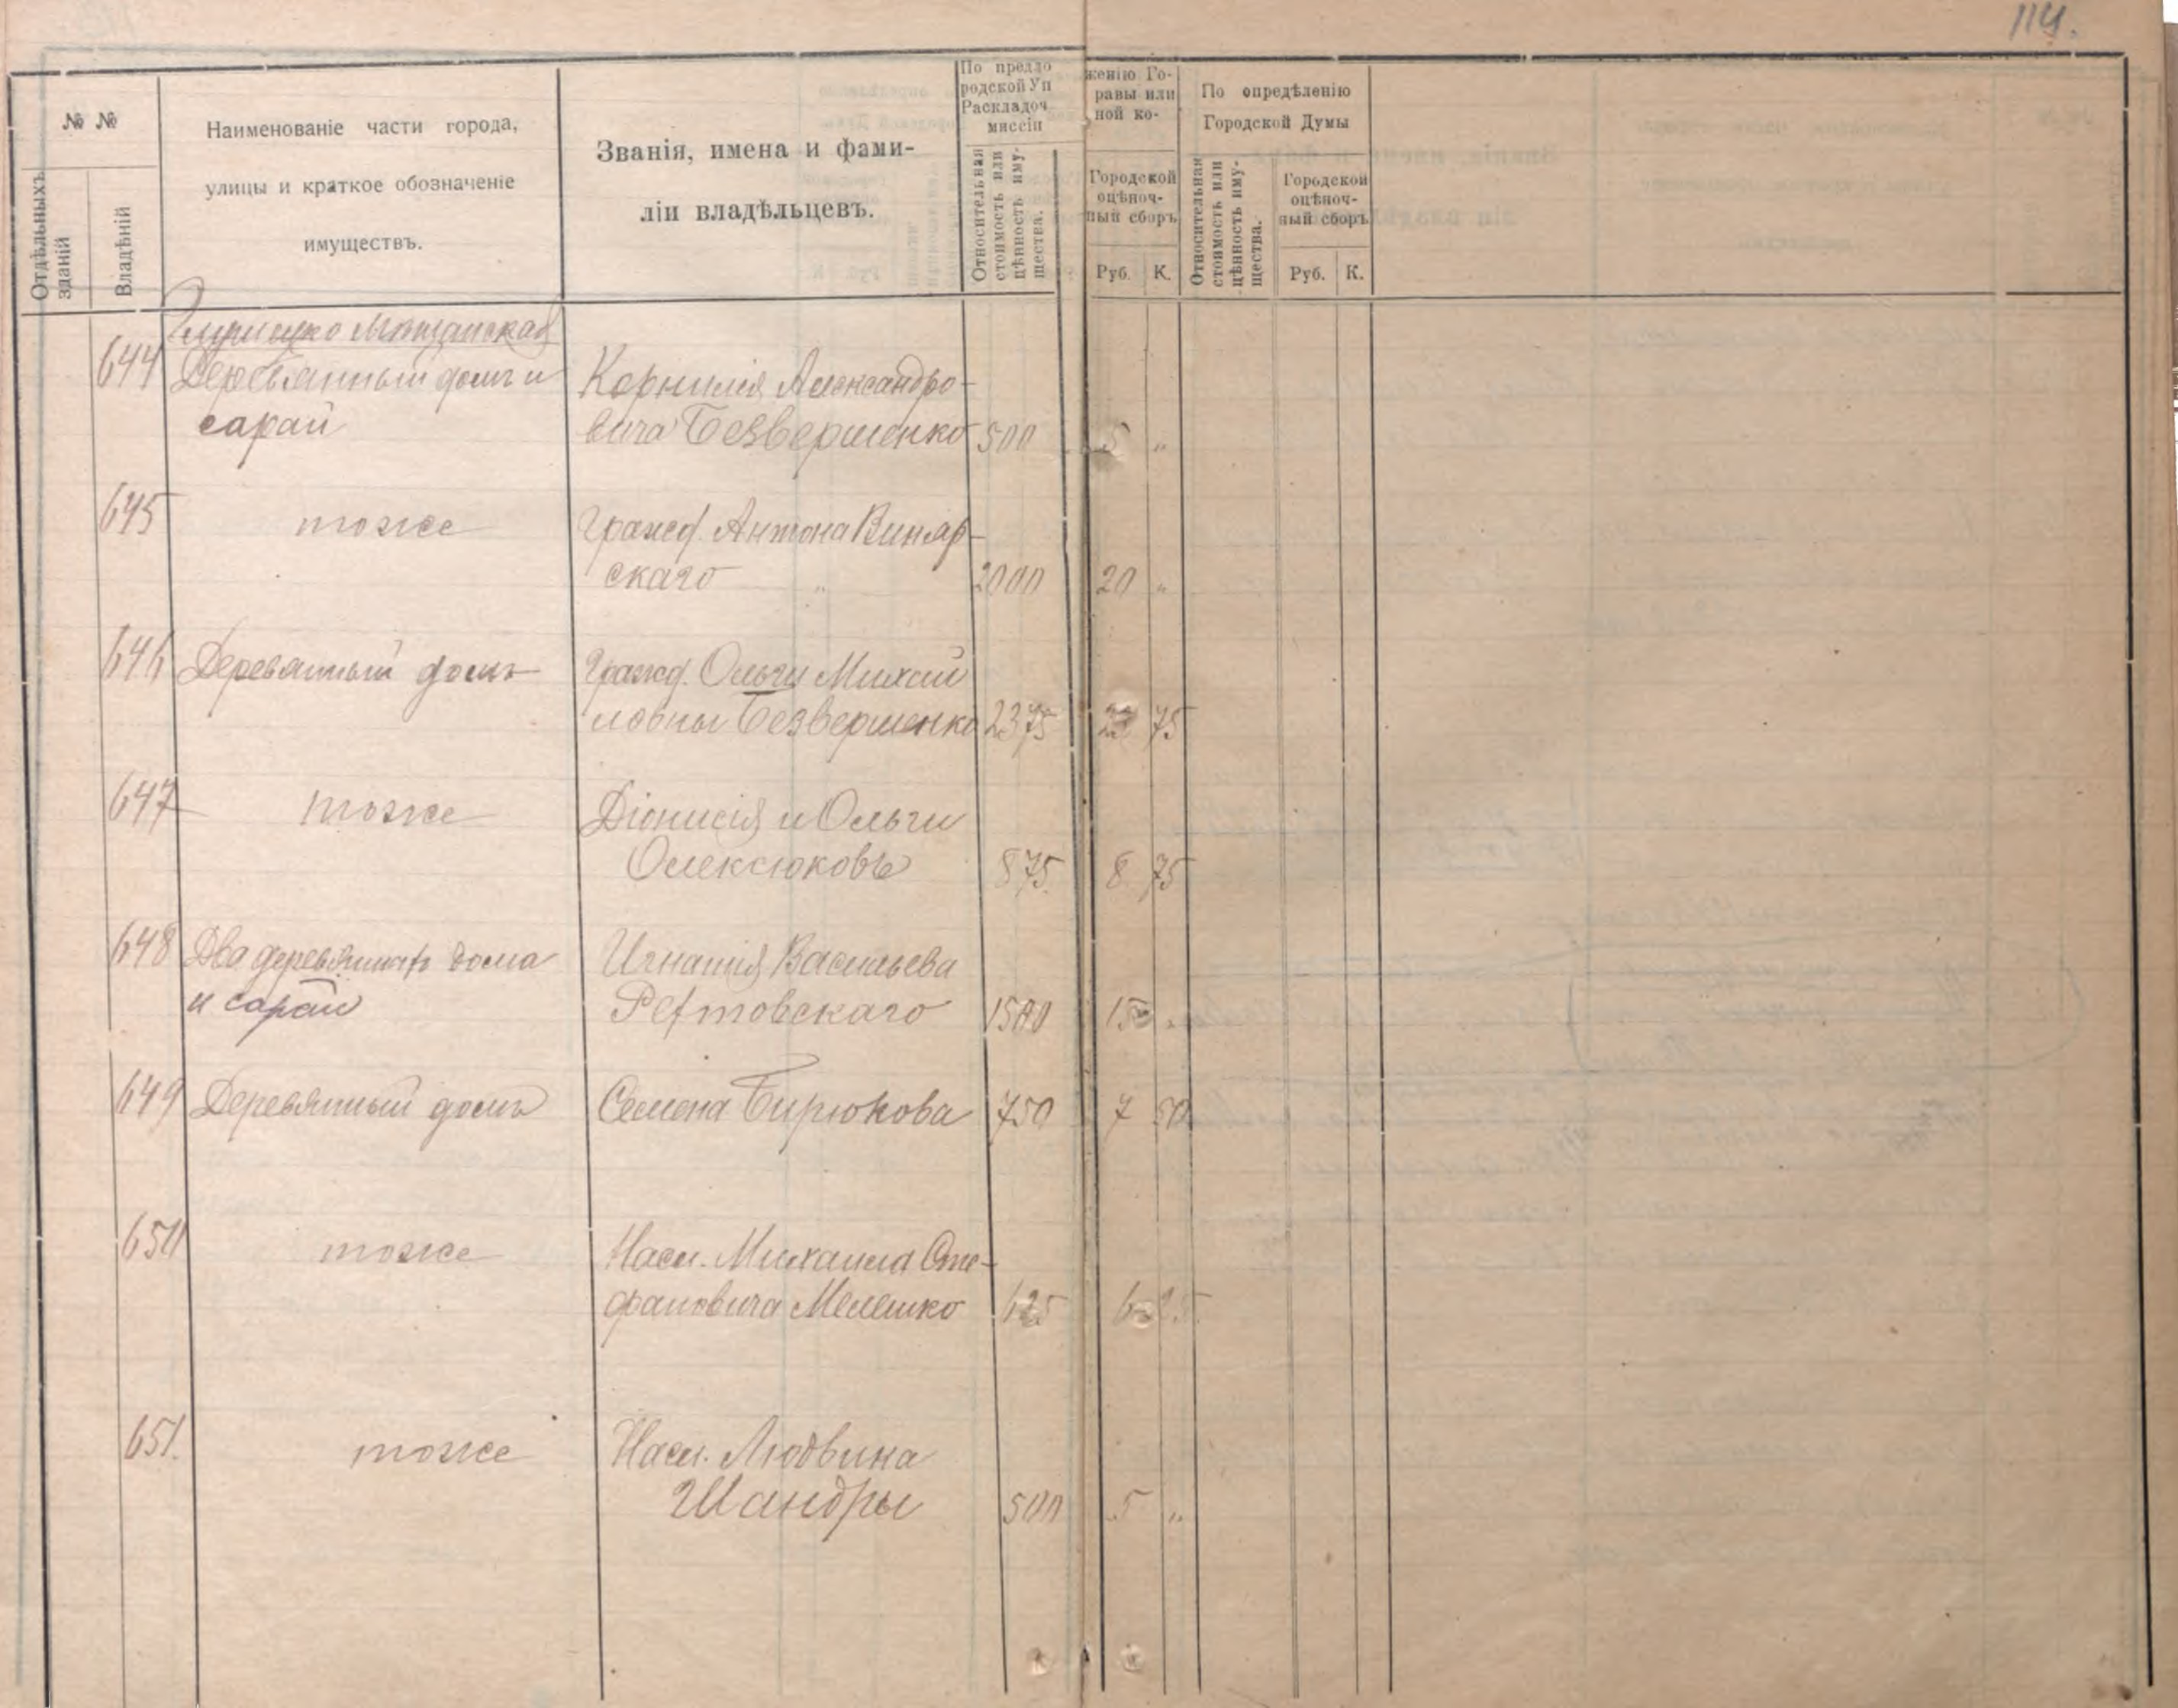 114.
№ №
Отдѣльныхъ зданій
Владѣній
Наименованіе части города,
улицы и краткое обозначеніе
имуществъ.
Званія, имена и фами-
ліи владѣльцевъ.
По предло
родской Уп
Раскладоч
миссіи
женію Го-
равы или
ной ко-
Относительная
стоимость или
цѣнность иму-
щества.
Городской
оцѣноч-
ный сборъ
Руб. К.
По опредѣленію
Городской Думы
Относительная
стоимость или
цѣнность иму-
щества.
Городской
оцѣноч-
ный сборъ
Руб. К.
644 Деревянный домъ и
сарай
Корнилія Александро-
вича Безвершенко 500 5 „
645 тоже Гражд. Антона Винар-
скаго „ 2000 20 „
646 Деревянный домъ Гражд. Ольги Михай
ловны Безвершенко 2375 23 75
647 тоже Діонисія и Ольги
Олексюковъ 875. 8 75
648 Два деревянныхъ дома Игнатія Васильева
и сарай 1500 15 „
649 Деревянный домъ Семена Бирюкова 750 7 50
650 тоже Насл. Михаила Сте-
фановича Мелешко 625 6 25
651. тоже Насл. Людвика
Шандры 500 5 „